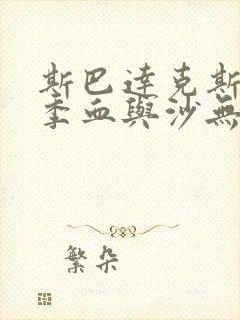 斯巴達克斯
季血與沙無
繁朵